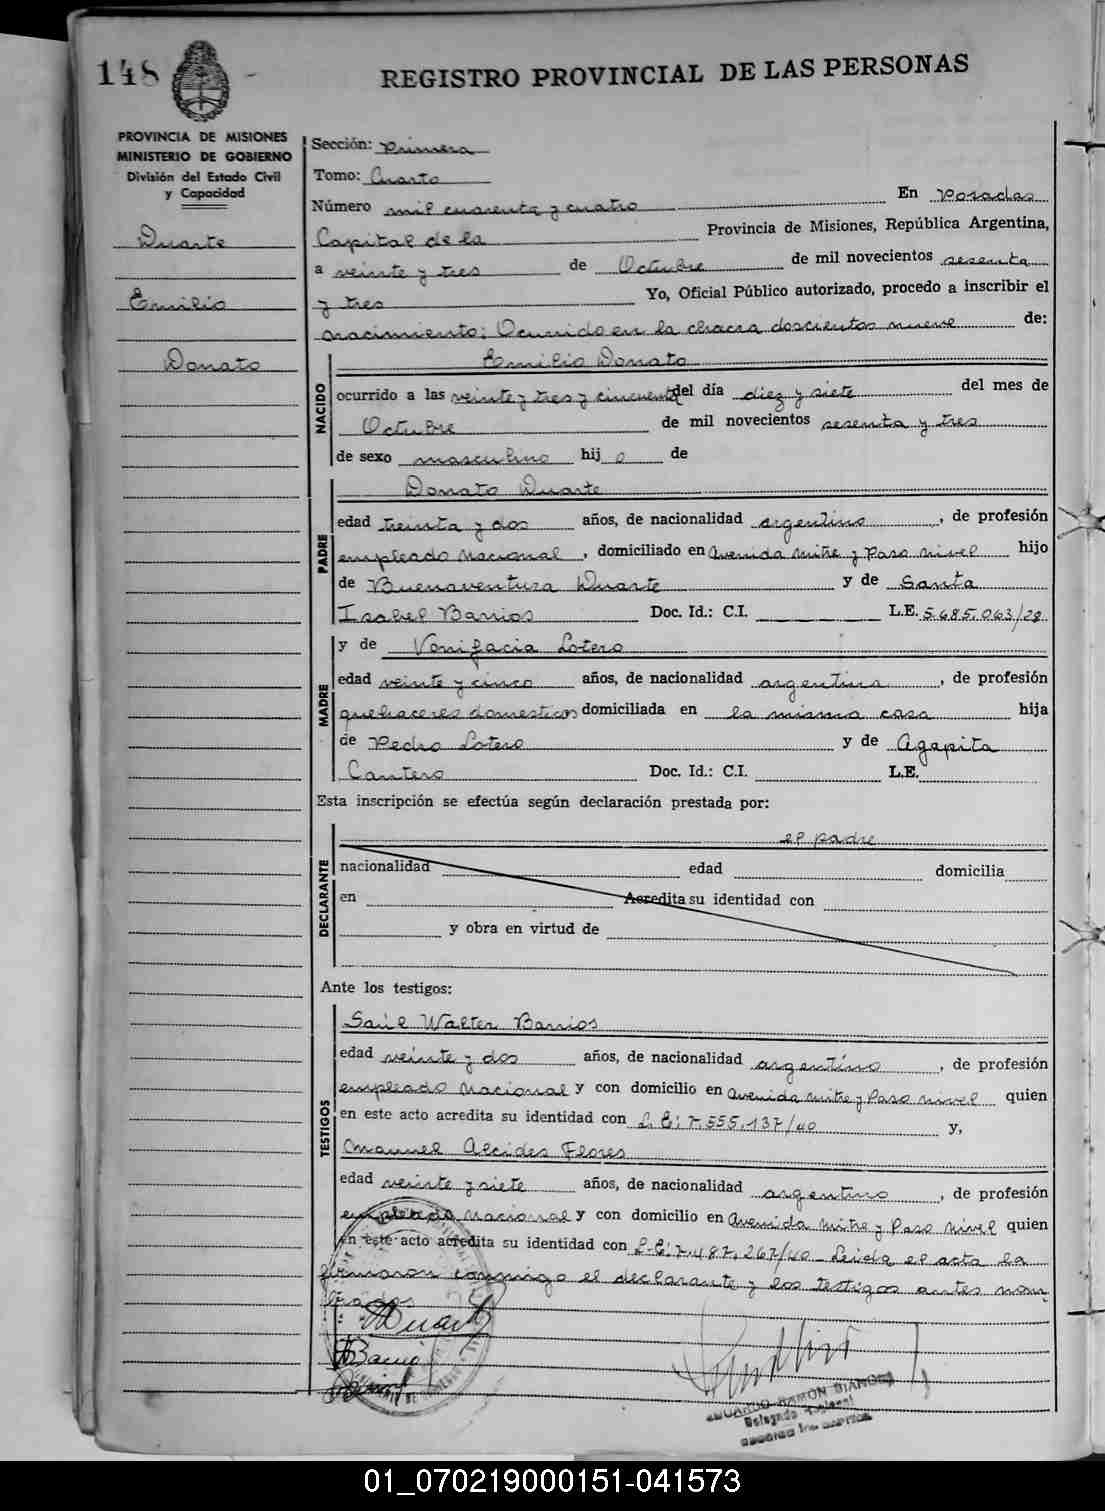 148
REGISTRO PROVINCIAL DE LAS PERSONAS
PROVINCIA DE MISIONES
MINISTERIO DE GOBIERNO
División del Estado Civil
y Capacidad
Duarte
Emilio
Donato
Sección: Primera
Tomo: Cuarto
Número mil cuarenta y cuatro En Posadas
Capital de la Provincia de Misiones, República Argentina,
a veinte y tres de Octubre de mil novecientos sesenta
y tres Yo, Oficial Público autorizado, procedo a inscribir el
nacimiento: Ocurrido en la chacra doscientos nueve de:
NACIDO
Emilio Donato
ocurrido a las veinte y tres y cincuenta del día diez y siete del mes de
Octubre de mil novecientos sesenta y tres
de sexo masculino hijo de
PADRE
Donato Duarte
edad treinta y dos años, de nacionalidad argentino, de profesión
empleado Nacional, domiciliado en Avenida Mitre y Paso nivel hijo
de Buenaventura Duarte y de Santa
Isabel Barrios Doc. Id.: C.I. L.E. 5.685.063/28
MADRE
y de Vonifacia Lotero
edad veinte y cinco años, de nacionalidad argentina, de profesión
quehaceres domesticos domiciliada en la misma casa hija
de Pedro Lotero y de Agapita
Cantero Doc. Id.: C.I. L.E.
Esta inscripción se efectúa según declaración prestada por:
DECLARANTE
el padre
nacionalidad edad domicilia
en Acredita su identidad con
y obra en virtud de
Ante los testigos:
TESTIGOS
Saúl Walter Barrios
edad veinte y dos años, de nacionalidad argentino, de profesión
empleado Nacional y con domicilio en Avenida Mitre y Paso nivel quien
en este acto acredita su identidad con L.E: 7.555.137/40 y,
Manuel Alcides Flores
edad veinte y siete años, de nacionalidad argentino, de profesión
empleado Nacional y con domicilio en Avenida Mitre y Paso nivel quien
en este acto acredita su identidad con L.E: 7.487.267/40 - Leida el acta la
firmaron conmigo el declarante y los testigos antes nom-
brados
Duarte
RAMÓN
Delegado
01_070219000151-041573